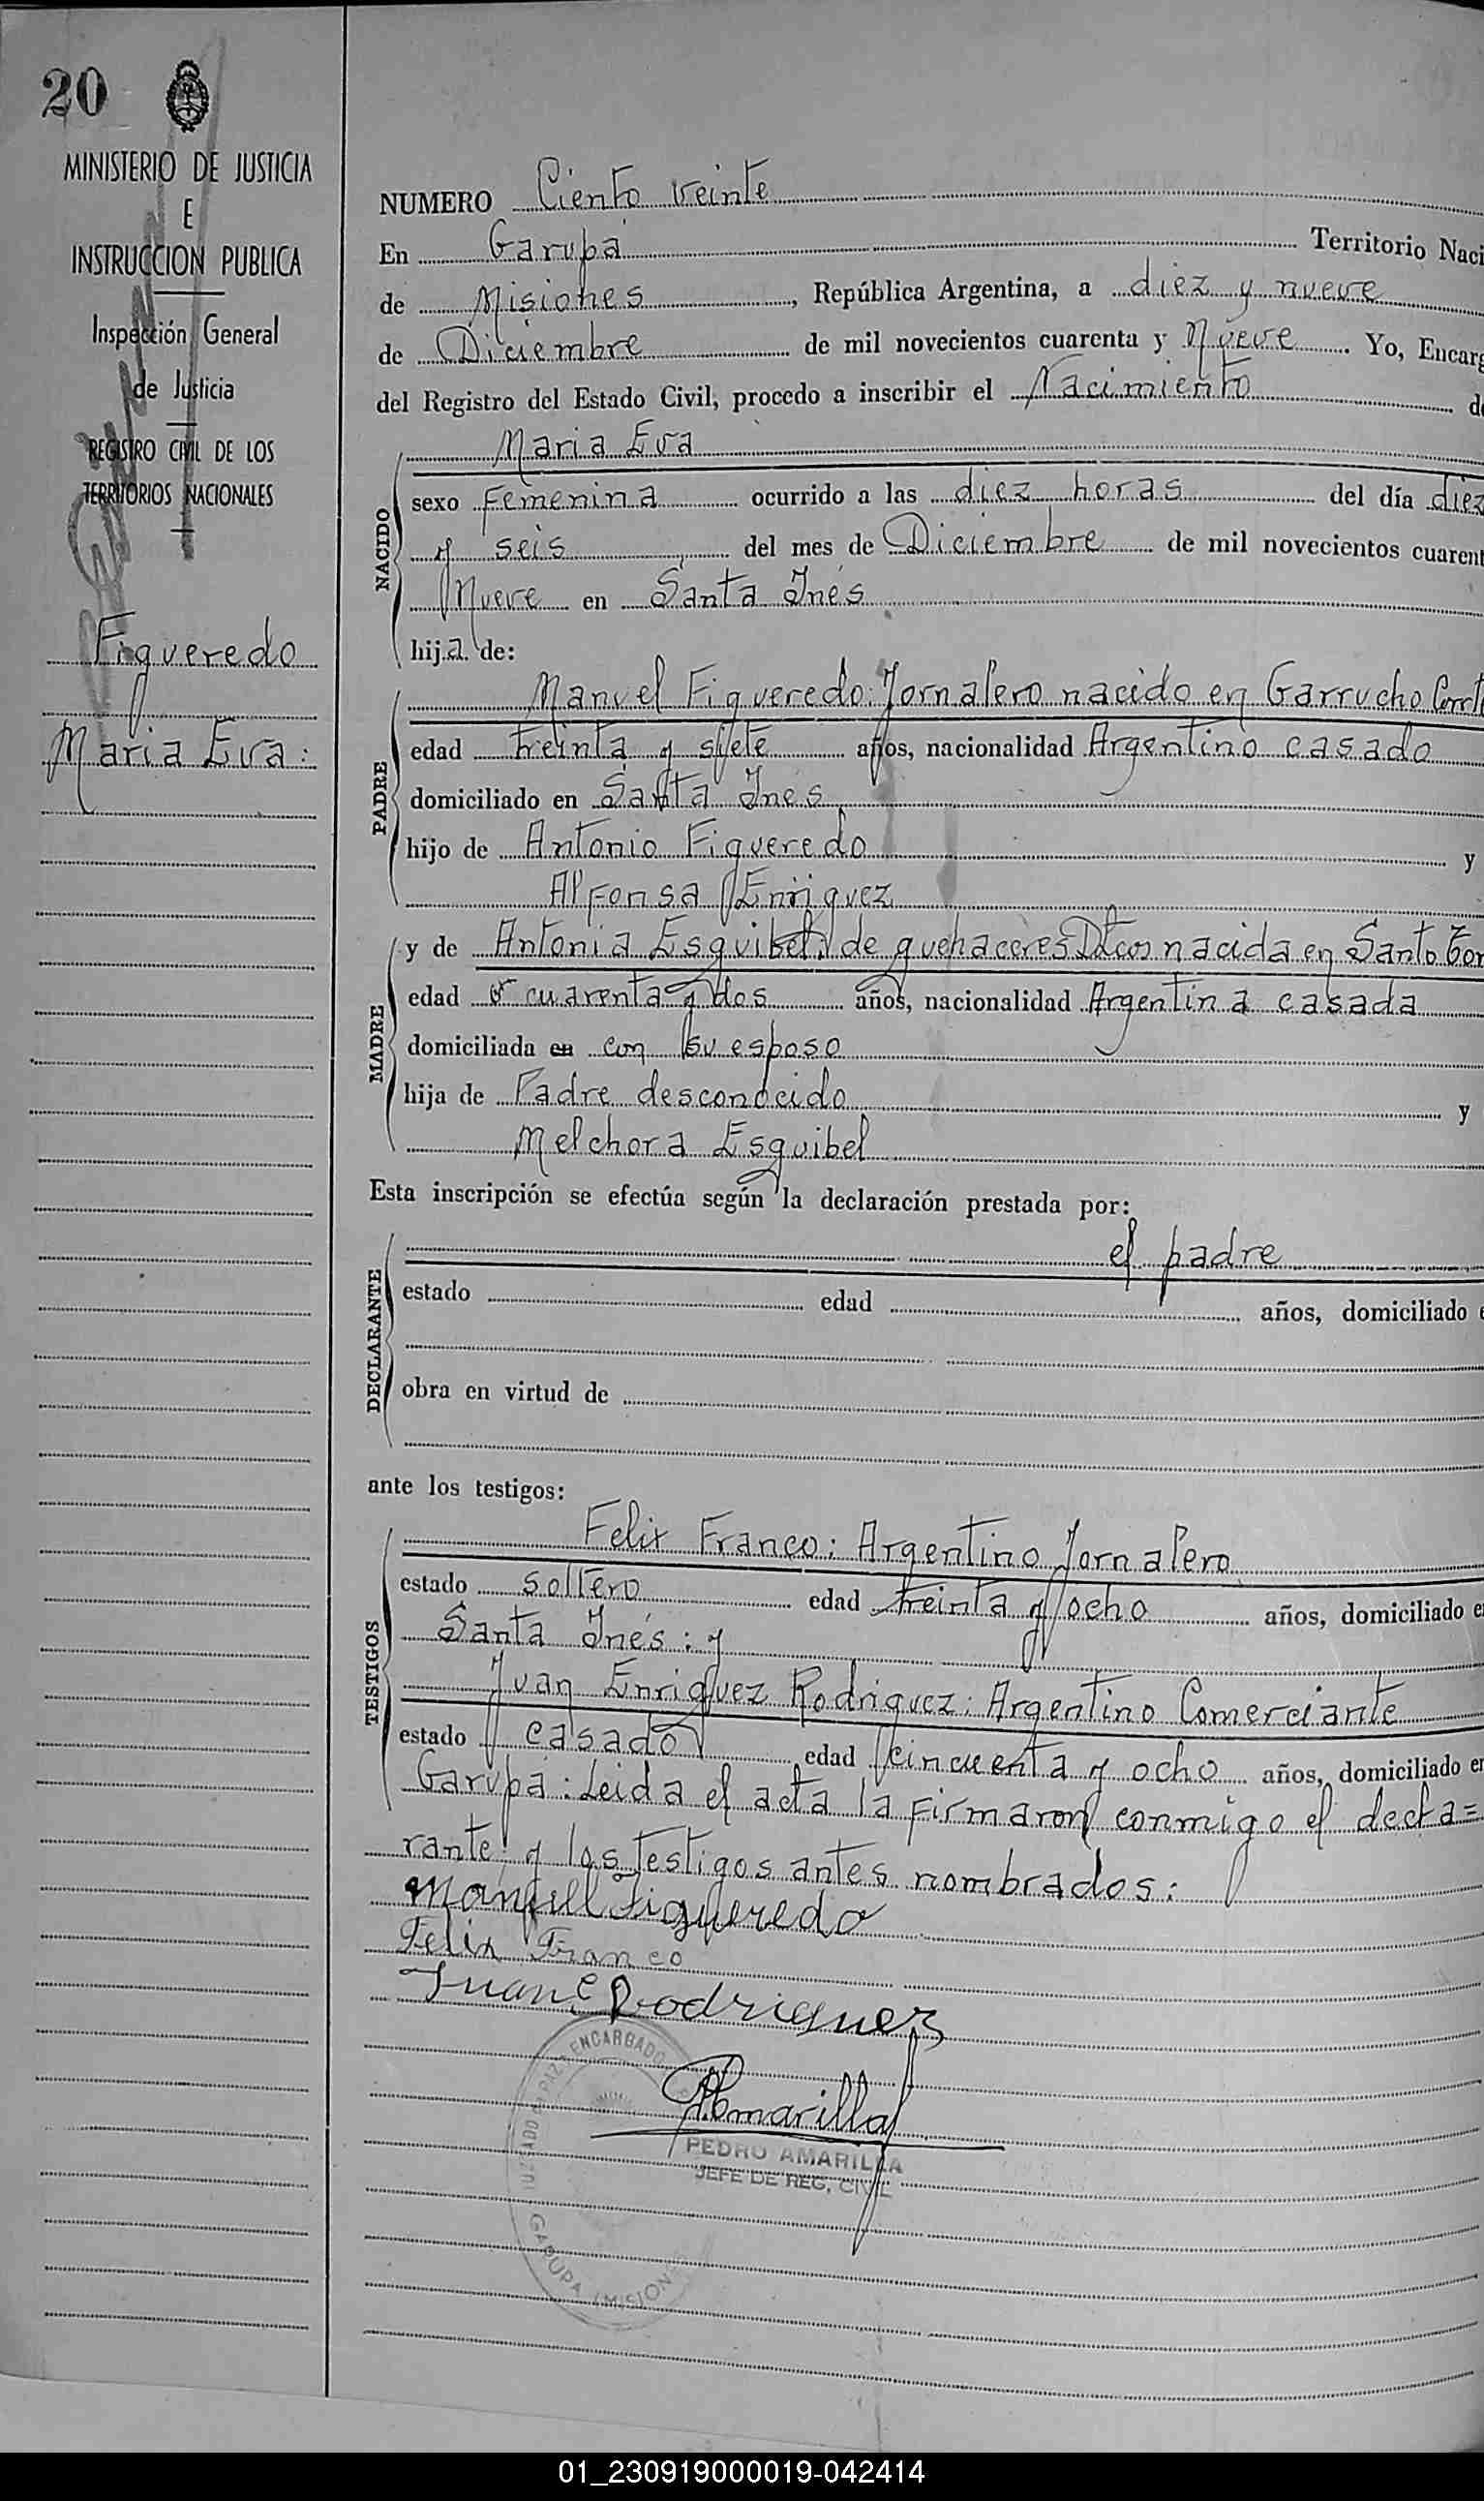 20
MINISTERIO DE JUSTICIA
E
INSTRUCCION PUBLICA
Inspección General
de Justicia
REGISTRO CIVIL DE LOS
TERRITORIOS NACIONALES
Figueredo
Maria Eva:
NUMERO Ciento veinte
En Garupá Territorio Naci
de Misiones, República Argentina, a diez y nueve
de Diciembre de mil novecientos cuarenta y Nueve. Yo, Encarg
del Registro del Estado Civil, procedo a inscribir el Nacimiento d
NACIDO
Maria Eva
sexo Femenina ocurrido a las diez horas del día diez
y seis del mes de Diciembre de mil novecientos cuarent
Nueve en Santa Inés
hij a de:
PADRE
Manuel Figueredo: Jornalero nacido en Garrucho
edad treinta y siete años, nacionalidad Argentino casado
domiciliado en Santa Inés
hijo de Antonio Figueredo y
Alfonsa Enriquez
MADRE
y de Antonia Esquibel: de quehaceres nacida en Santo
edad cuarenta y dos años, nacionalidad Argentina casada
domiciliada en con su esposo
hija de Padre desconocido y
Melchora Esquibel
Esta inscripción se efectúa según la declaración prestada por:
DECLARANTE
el padre
estado edad años, domiciliado e
obra en virtud de
ante los testigos:
TESTIGOS
Felix Franco: Argentino Jornalero
estado soltero edad treinta y ocho años, domiciliado en
Santa Inés: y
Juan Enriquez Rodriguez: Argentino Comerciante
estado casado edad cincuenta y ocho años, domiciliado en
Garupá: Leida el acta la firmaron conmigo el decla=
rante y los testigos antes nombrados:
Manuel Figueredo
Felix Franco
Juan E Rodriguez
PAmarilla
PEDRO AMARILLA
JEFE DE REG. CIVIL
JUZGADO DE PAZ - ENCARGADO
GARUPA (MISION
01_230919000019-042414